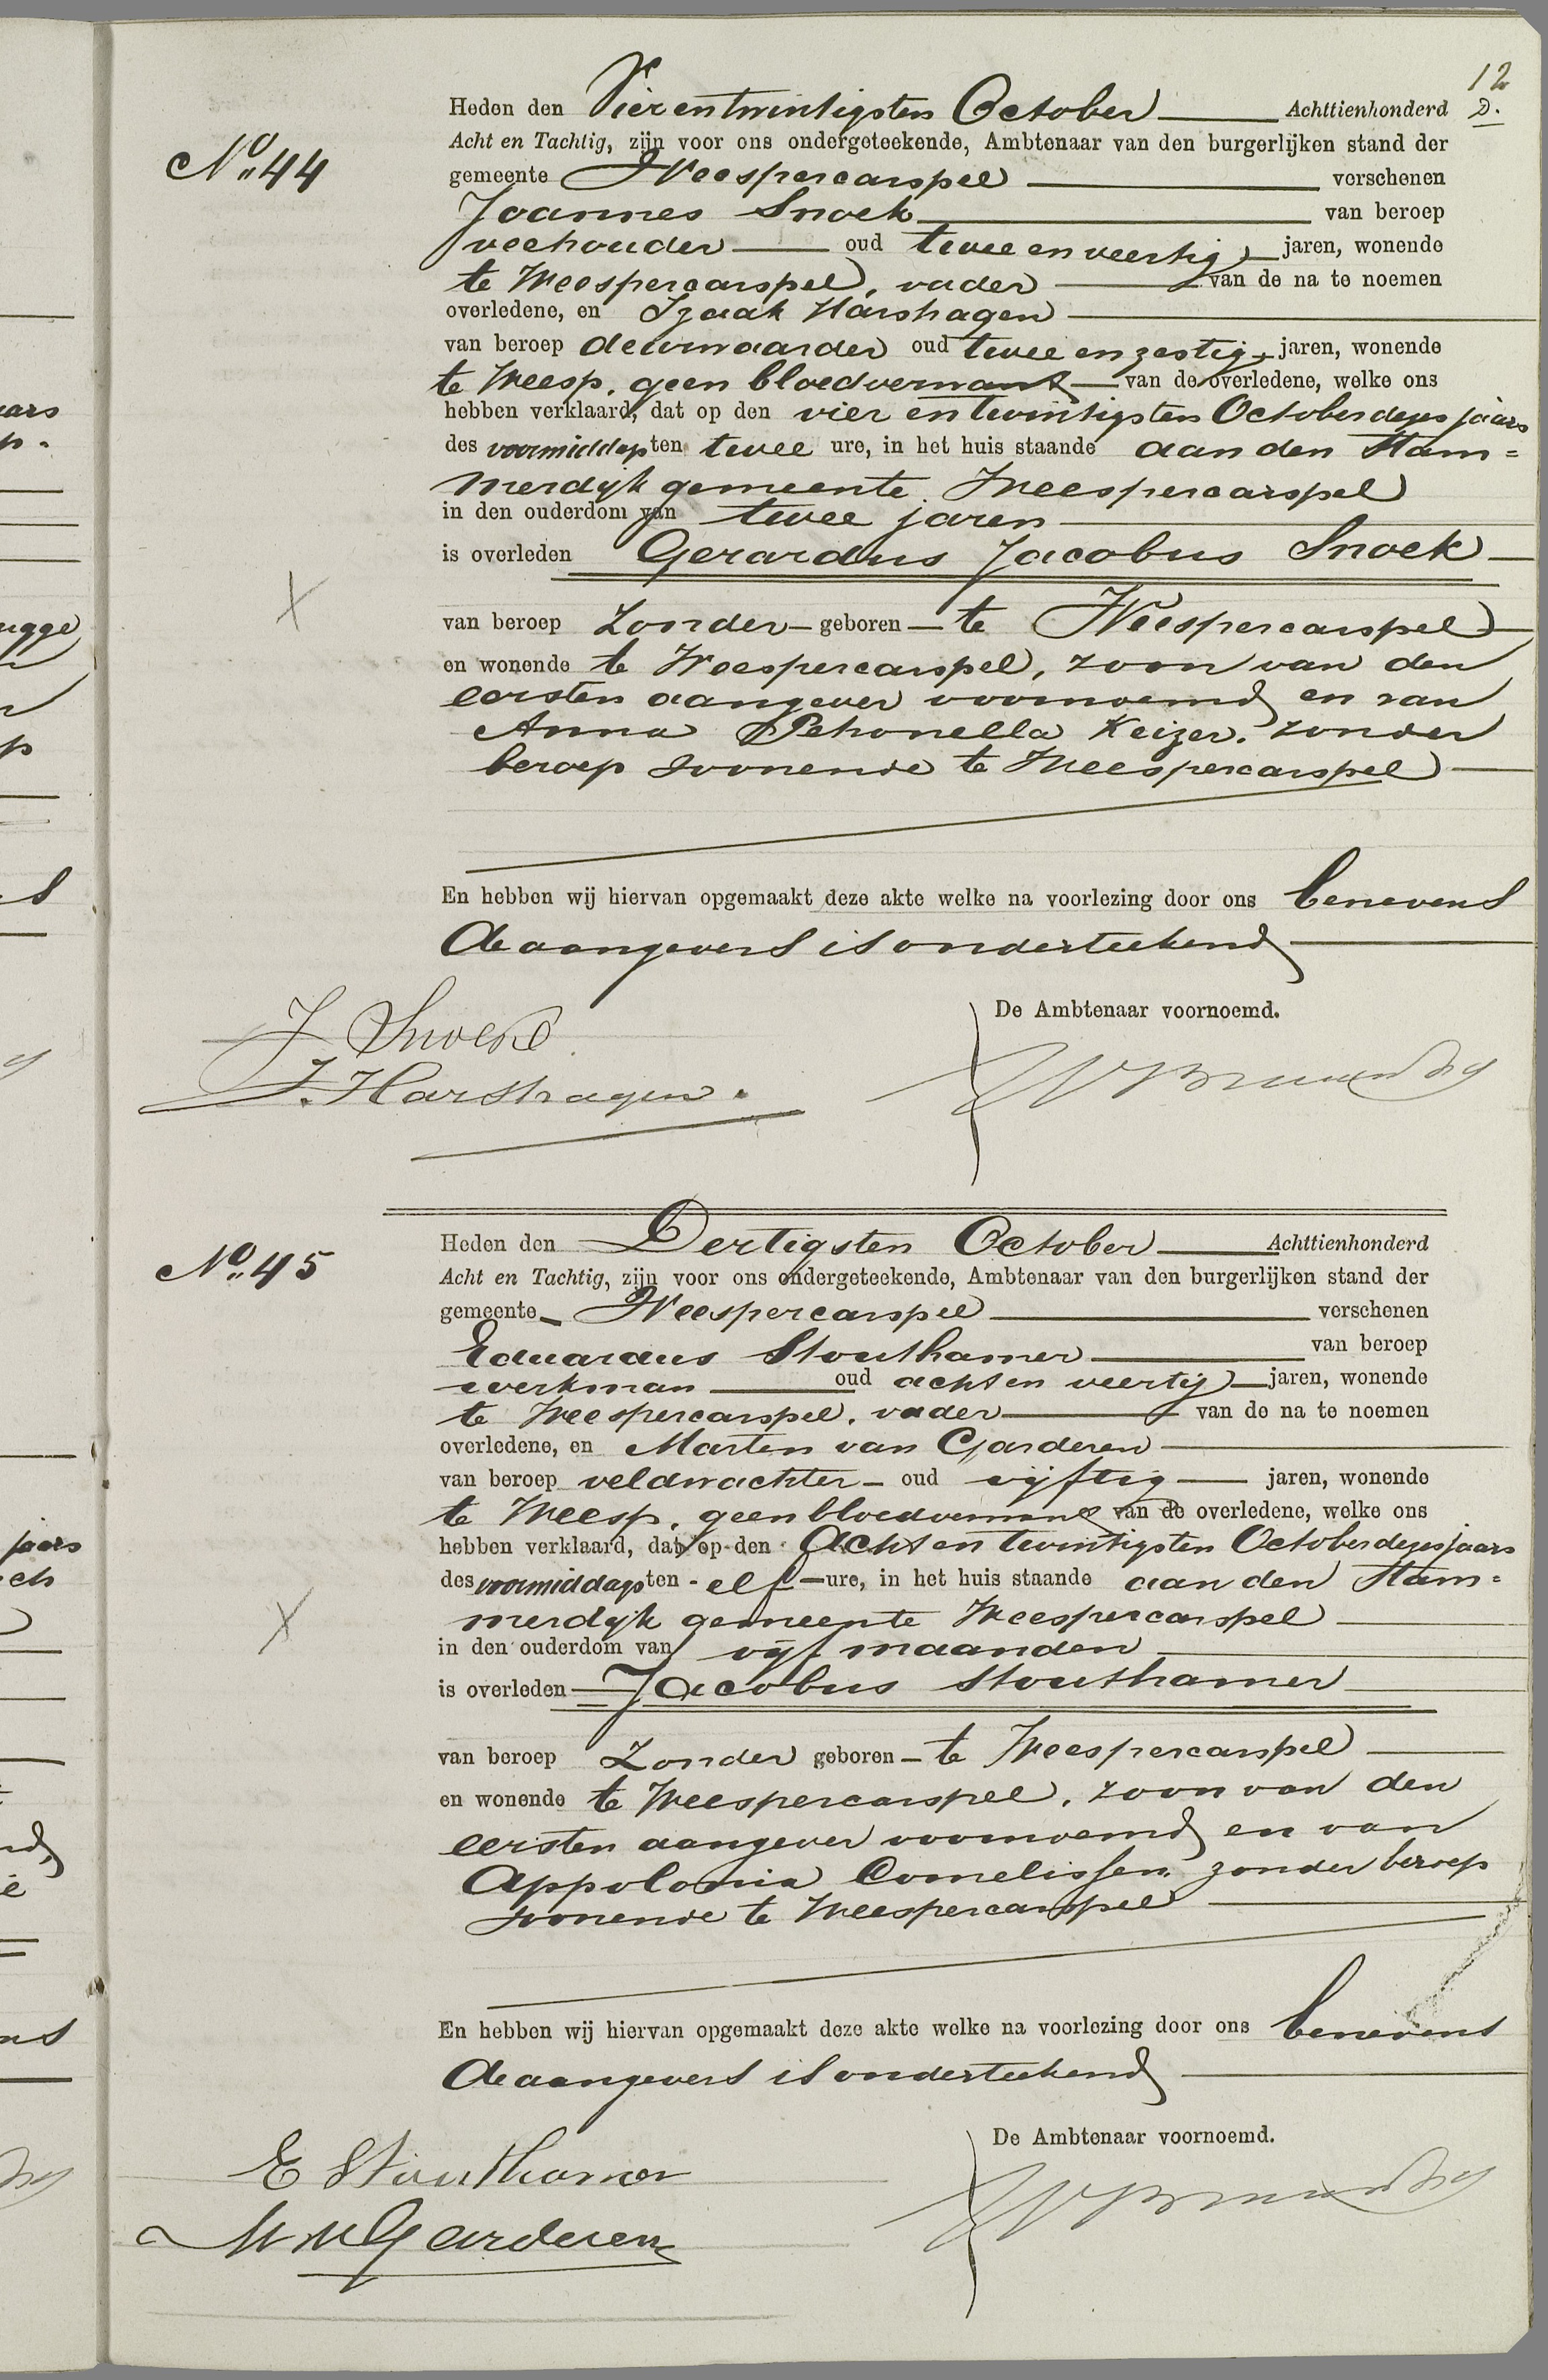 12
D.
No. 44
Heden den Vierentwintigsten October Achttienhonderd
Acht en Tachtig, zijn voor ons ondergeteekende, Ambtenaar van den burgerlijken stand der
gemeente Weespercarspel verschenen
Joannes Snoek van beroep
veehouder oud twee en veertig jaren, wonende
te Weespercarspel, vader van de na te noemen
overledene, en Izaak Harshagen
van beroep deurwaarder oud twee en zestig jaren, wonende
te Weesp, geen bloedverwant van de overledene, welke ons
hebben verklaard, dat op den vier en twintigsten October dezes jaars
des voormiddags ten twee ure, in het huis staande aan den Stam=
merdijk gemeente Weespercarspel
in den ouderdom van twee jaren
is overleden Gerardus Jacobus Snoek
van beroep zonder geboren te Weespercarspel
en wonende te Weespercarspel, zoon van den
eersten aangever voornoemd en van
Anna Petronella Keizer, zonder
beroep wonende te Weespercarspel
En hebben wij hiervan opgemaakt deze akte welke na voorlezing door ons benevens
de aangevers is onderteekend
De Ambtenaar voornoemd.
J Snoek
J. Harshagen.
No. 45
Heden den Dertigsten October Achttienhonderd
Acht en Tachtig, zijn voor ons ondergeteekende, Ambtenaar van den burgerlijken stand der
gemeente Weespercarspel verschenen
Eduardus Stouthamer van beroep
werkman oud acht en veertig jaren, wonende
te Weespercarspel, vader van de na te noemen
overledene, en Marten van Garderen
van beroep veldwachter oud vijftig jaren, wonende
te Weesp, geen bloedverwant van de overledene, welke ons
hebben verklaard, dat op den Acht en twintigsten October dezes jaars
des voormiddags ten elf ure, in het huis staande aan den Stam=
merdijk gemeente Weespercarspel
in den ouderdom van vijf maanden
is overleden Jacobus Stouthamer
van beroep zonder geboren te Weespercarspel
en wonende te Weespercarspel, zoon van den
eersten aangever voornoemd en van
Appolonia Cornelissen, zonder beroep
wonende te Weespercarspel
En hebben wij hiervan opgemaakt deze akte welke na voorlezing door ons benevens
de aangevers is onderteekend
De Ambtenaar voornoemd.
E Stouthamer
M v Garderen